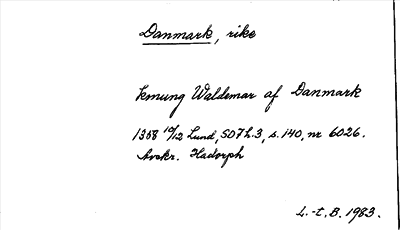 Danmark, rike
konung Waldemar af Danmark
1358 10/12 Lund, SD 7 h.3, s. 140, nr 6026.
Avskr. Hadorph
L.-t, B. 1983.